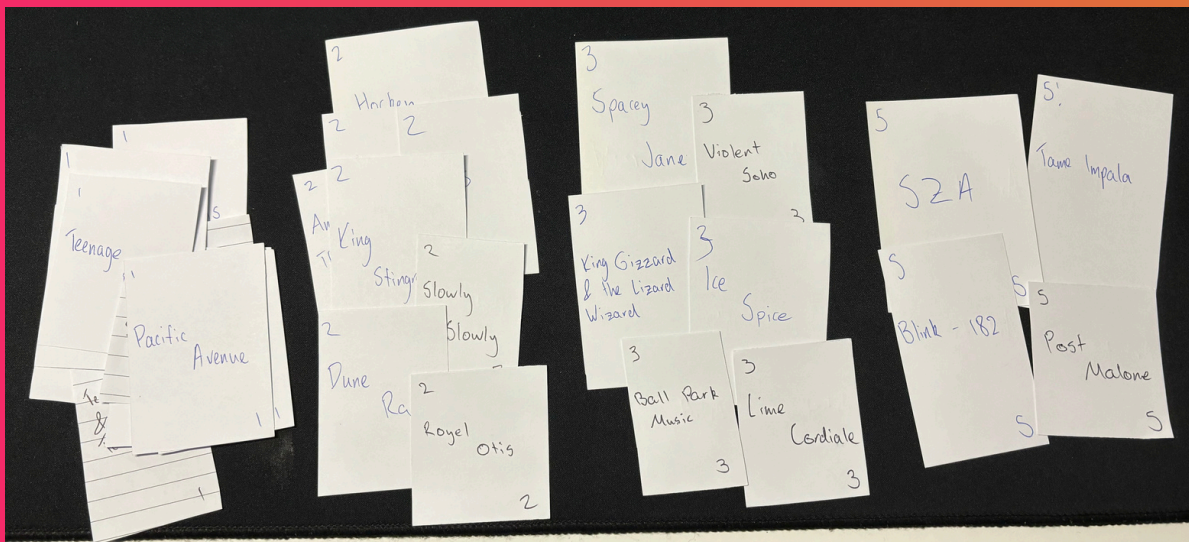 1
1
1
Teenage
S
11
Pacific
Avenue
1
1
&
1
2
Harbou
2
2
2
2
King
Stingr
2
Slowly
Slowly
2
Dune
Ra
2
Royel
Otis
2
3
Spacey
Jane
3
Violent
Soho
3
3
King Gizzard
& the Lizard
Wizard
3
Ice
Spice
3
Ball Park
Music
3
3
Lime
Cordiale
3
5
SZA
5
5
Blink - 182
5
5!
Tame Impala
5
Post
Malone
5